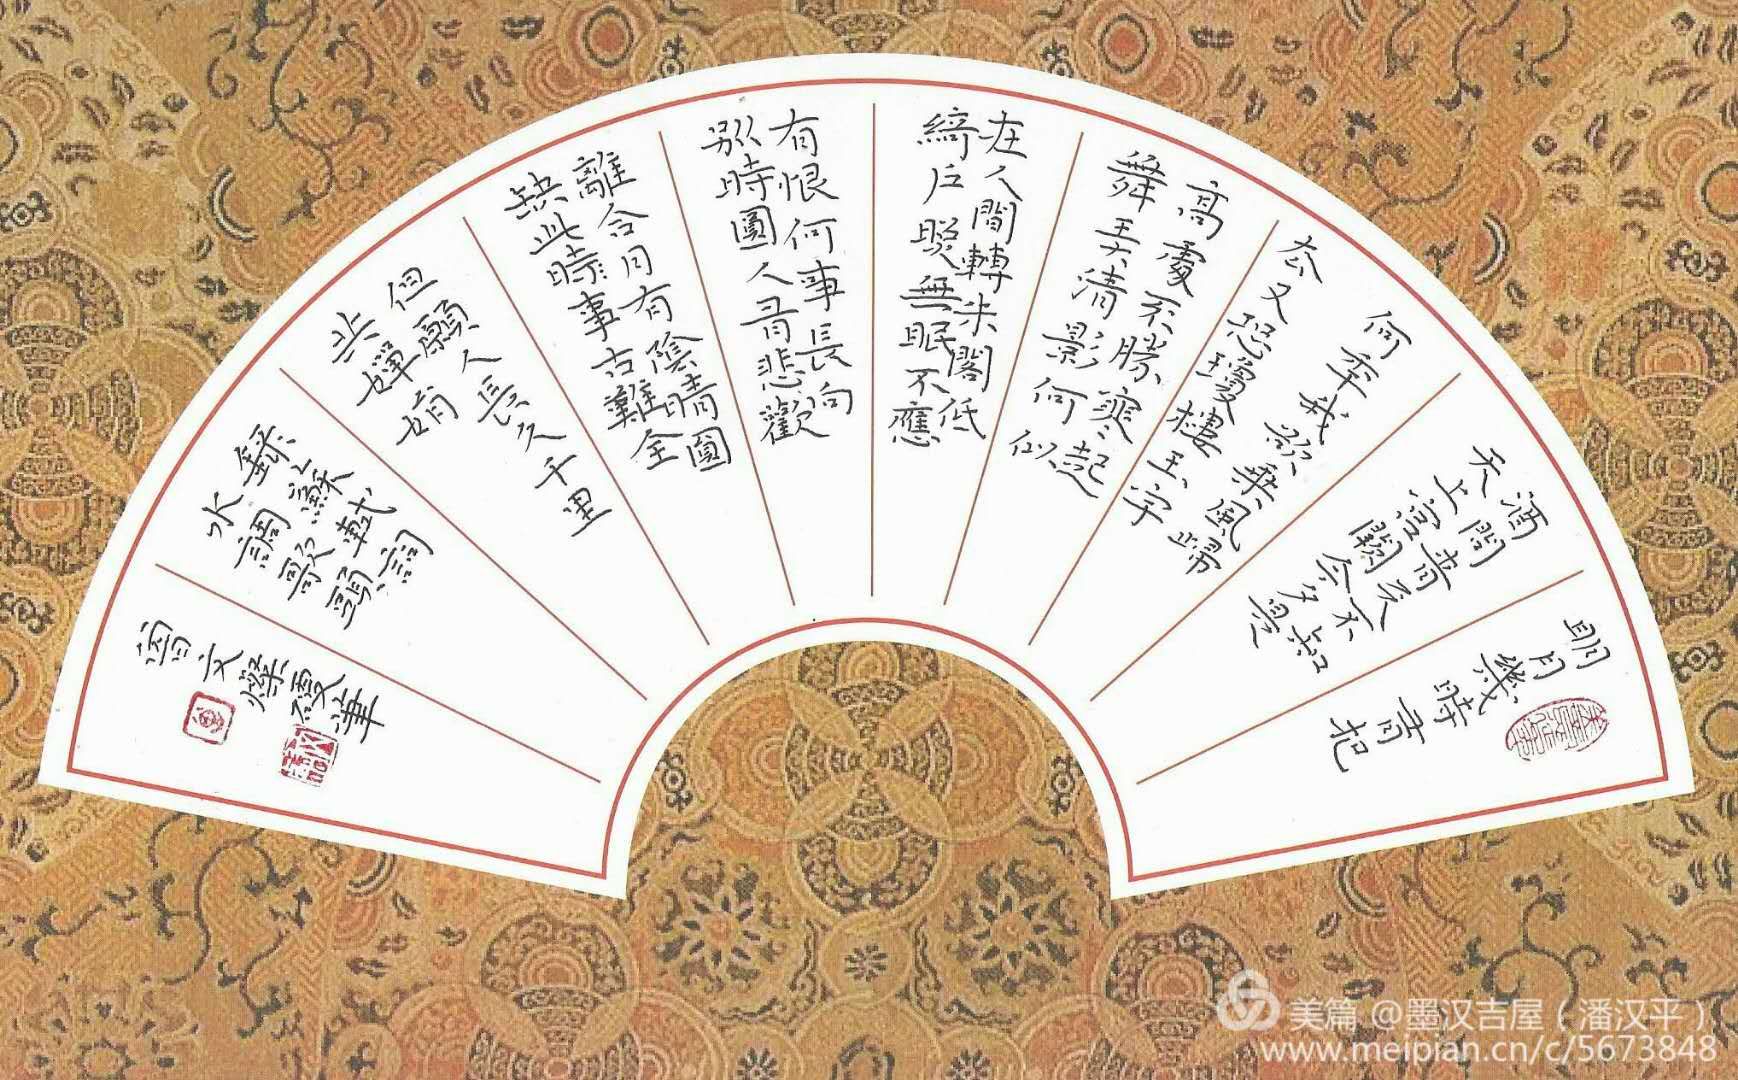 明月幾時有把
酒問青天不知
天上宮闕今夕是
何年我欲乘風歸
去又恐瓊樓玉宇
高處不勝寒起
舞弄清影何似
在人間轉朱閣低
綺戶照無眠不應
有恨何事長向
別時圓人有悲歡
離合月有陰晴圓
缺此時事古難全
但願人長久千里
共嬋娟
錄蘇軾詞
水調歌頭
曾文燦硬筆
美篇 @墨汉吉屋（潘汉平）
www.meipian.cn/c/5673848